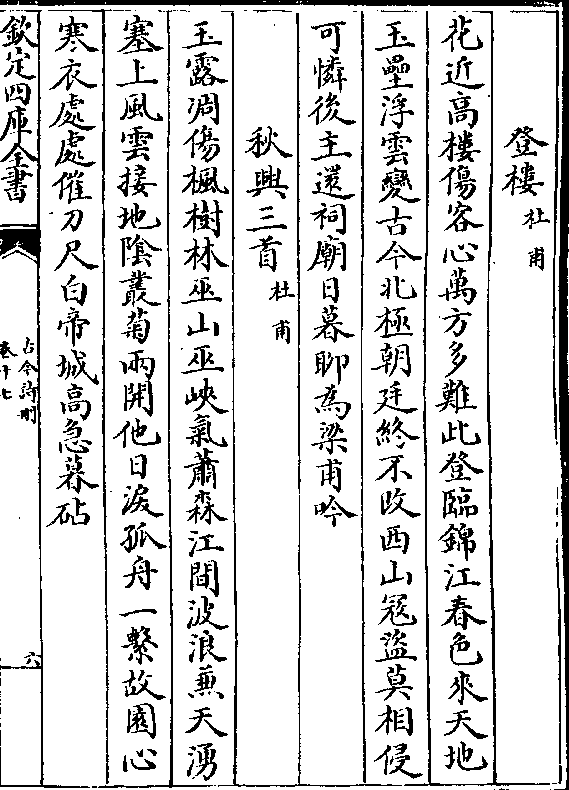 登樓杜甫
花近高樓傷客心萬方多難此登臨錦江春色來天地
玉壘浮雲變古今北極朝廷終不改西山寇盜莫相侵
可憐後主還祠廟日暮聊為梁甫吟
秋興三首杜甫
玉露凋傷楓樹林巫山巫峽氣蕭森江間波浪兼天湧
塞上風雲接地陰叢菊兩開他日淚孤舟一繫故園心
寒衣處處催刀尺白帝城高急暮砧
欽定四庫全書
古今詩刪
卷十七
六